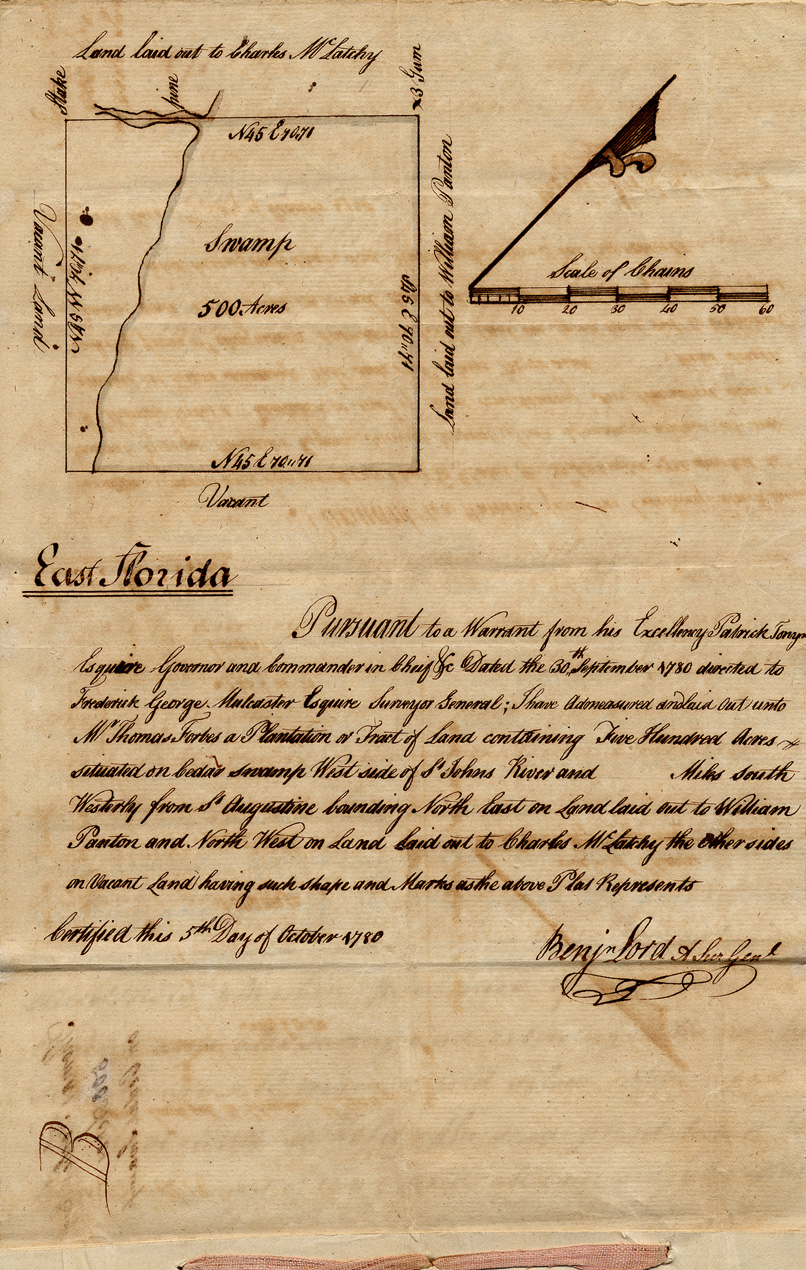 Land laid out to Charles McLatchy
Stake
pine
x3 Gum
N45 E 70,,71
Vacant Land
N45 W 70,,71
Swamp
500 Acres
S45 E 70,,71
Land laid out to William Panton
Scale of Chains
10 20 30 40 50 60
N45 E 70,,71
Vacant
East Florida
Pursuant to a Warrant from his Excellency Patrick Tonyn
Esquire Governor and Commander in Cheif &c Dated the 30th September 1780 directed to
Frederick George Mulcaster Esquire Surveyor General; I have Admeasured and laid out unto
Mr Thomas Forbes a Plantation or Tract of Land containing Five Hundred Acres
situated on Cedar swamp West side of St Johns River and Miles South
Westerly from St Augustine bounding North East on Land laid out to William
Panton and North West on Land Laid out to Charles McLatchy the other sides
on Vacant Land having such shape and Marks as the above Plat Represents
Certified this 5th Day of October 1780
Benjn Lord A Sur Genl
B